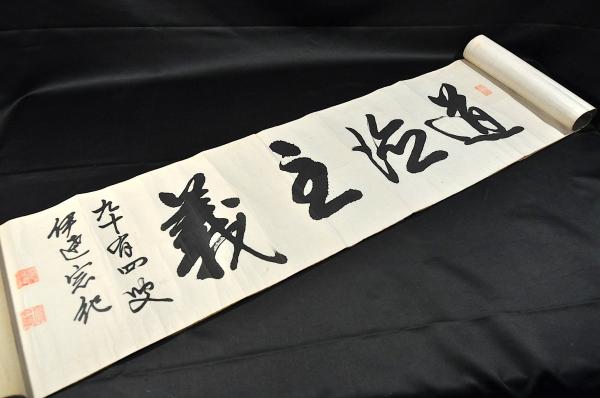 道主義
九十有四叟
伊達宗紀